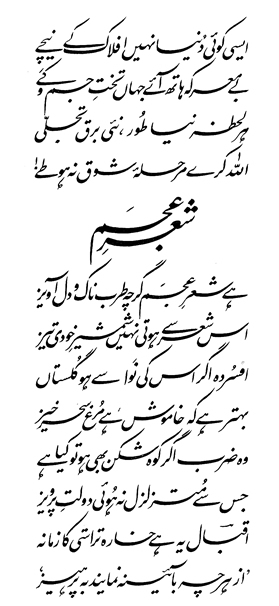 ایسی کوئی دُنیا نہیں افلاک کے نیچے
بے معرکہ ہاتھ آئے جہاں تختِ جم و کَے
ہر لحظہ نیا طُور، نئی برقِ تجلّی
اللہ کرے مرحلۂ شوق نہ ہو طے!
شعرِ عجَم
ہے شعرِ عجَم گرچہ طرب ناک و دل آویز
اس شعر سے ہوتی نہیں شمشیرِ خودی تیز
افسُردہ اگر اس کی نوا سے ہو گلستاں
بہتر ہے کہ خاموش رہے مُرغِ سحَر خیز
وہ ضرب اگر کوہ شکن بھی ہو تو کیا ہے
جس سے متزلزل نہ ہوئی دولتِ پرویز
اقبالؔ یہ ہے خارہ تراشی کا زمانہ
'از ہر چہ بآئینہ نمایند بہ پرہیز'